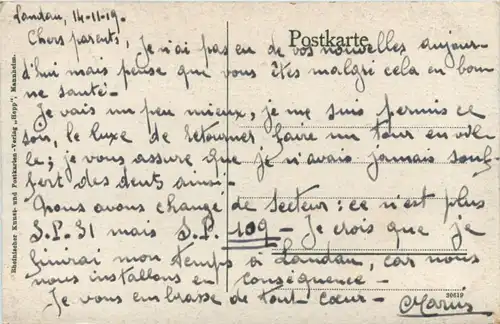 Landau, 14-11-19.
Postkarte
Chers parents, Je n'ai pas eu de vos nouvelles aujour-
d'hui mais pense que vous êtes malgré cela en bon-
ne santé -
Je vais un peu mieux, je me suis permis ce
soir, le luxe de retourner faire un tour en vil-
le; je vous assure que je n'avais jamais souf-
fert des dents ainsi -
Nous avons changé de secteur: ce n'est plus
S.P. 51 mais S.P. 109 - Je crois que je
finirai mon temps à Landau, car nous
nous installons en conséquence -
Je vous embrasse de tout cœur -
Marius
Rheinischer Kunst- und Postkarten-Verlag „Hepp", Mannheim.